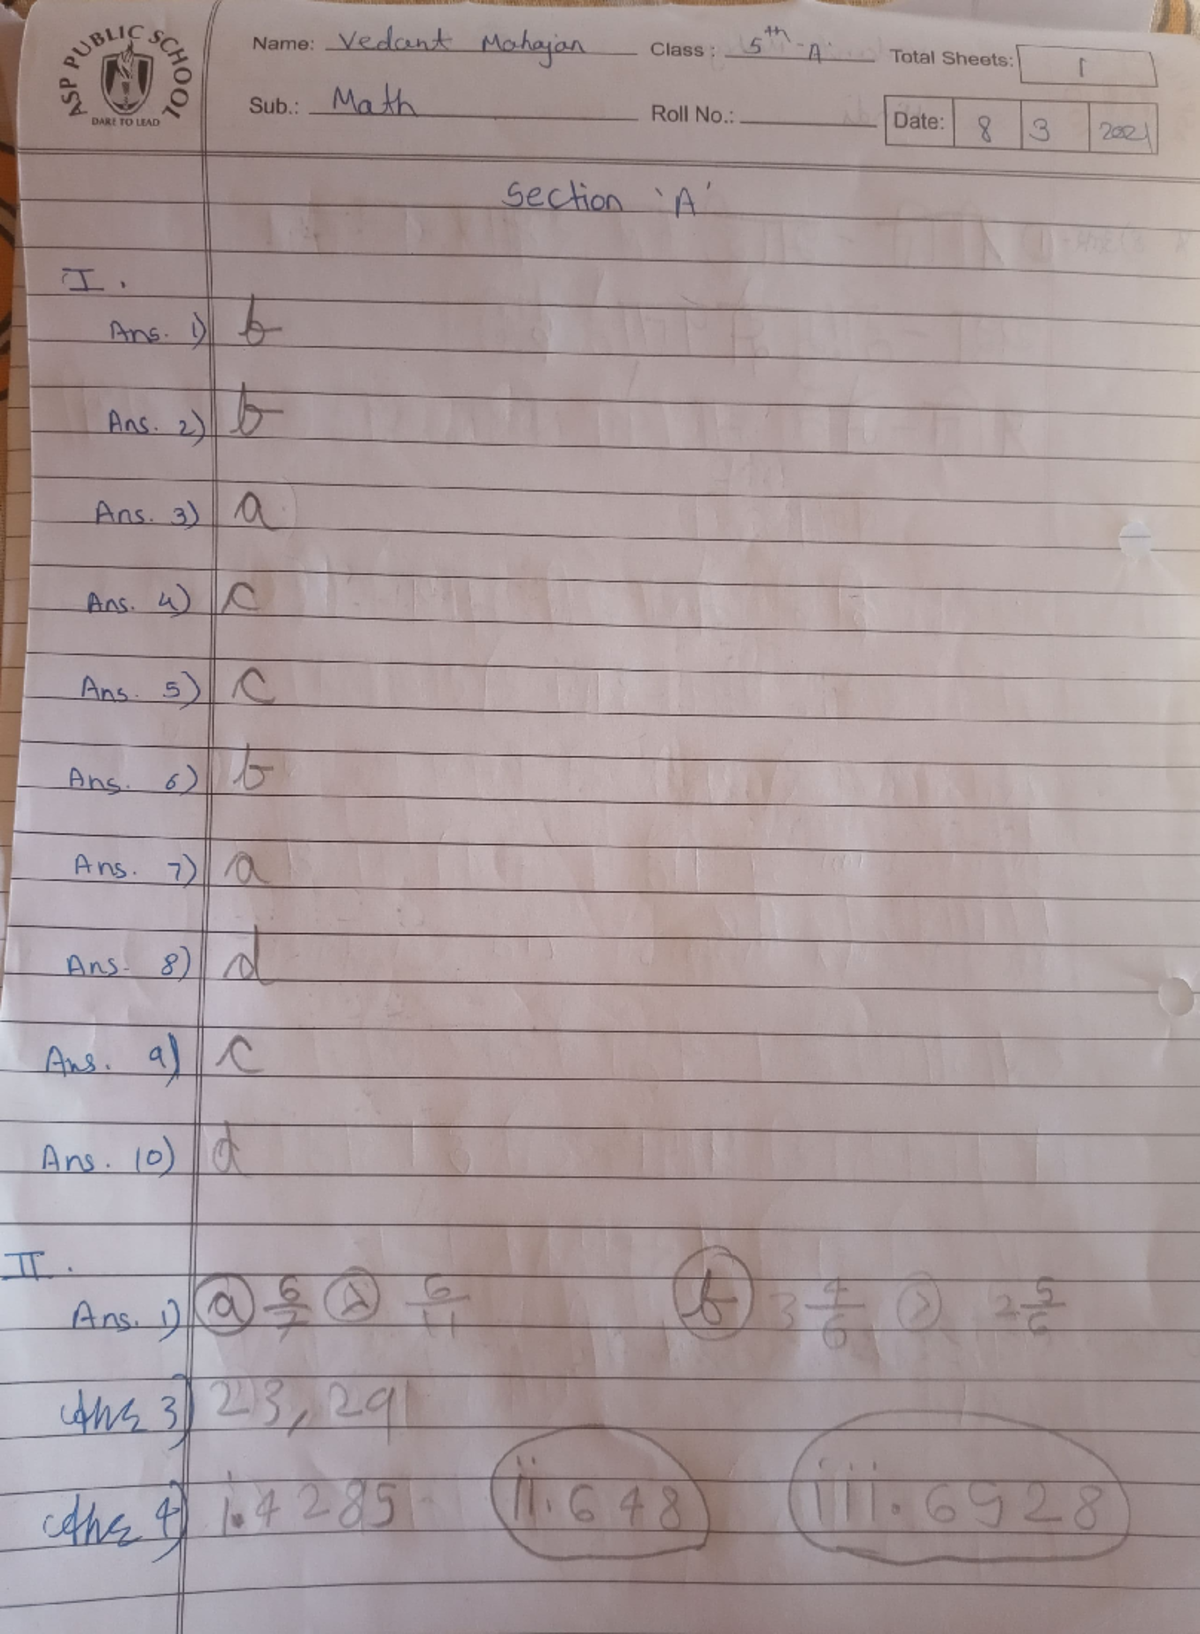 ASP PUBLIC SCHOOL
DARE TO LEAD
Name: Vedant Mahajan Class: 5th-A Total Sheets: 1
Sub.: Math Roll No.: Date: 8 3 2021
Section 'A'
I.
Ans. 1) b
Ans. 2) b
Ans. 3) a
Ans. 4) c
Ans. 5) c
Ans. 6) b
Ans. 7) a
Ans. 8) d
Ans. 9) c
Ans. 10) d
II.
Ans. 1) a 6/7 > 6/11 b 3 4/6 > 2 5/6
Ans 3) 23, 29
Ans 4) i. 4285 ii. 648 iii. 6928